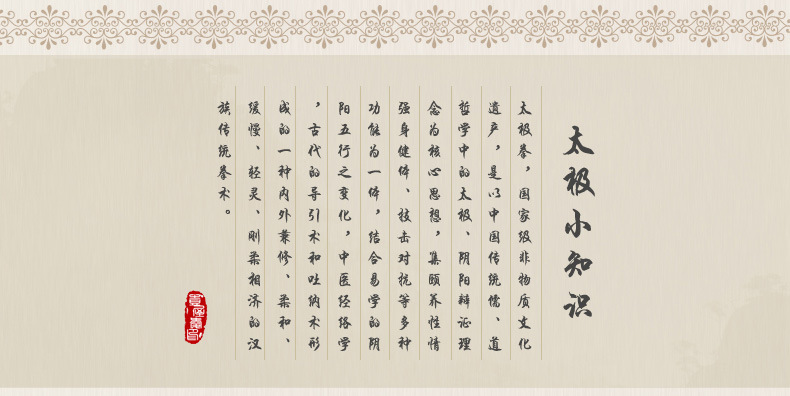 太极小知识
太极拳，国家级非物质文化
遗产，是以中国传统儒、道
哲学中的太极、阴阳辩证理
念为核心思想，集颐养性情
强身健体、技击对抗等多种
功能为一体，结合易学的阴
阳五行之变化，中医经络学
，古代的导引术和吐纳术形
成的一种内外兼修、柔和、
缓慢、轻灵、刚柔相济的汉
族传统拳术。